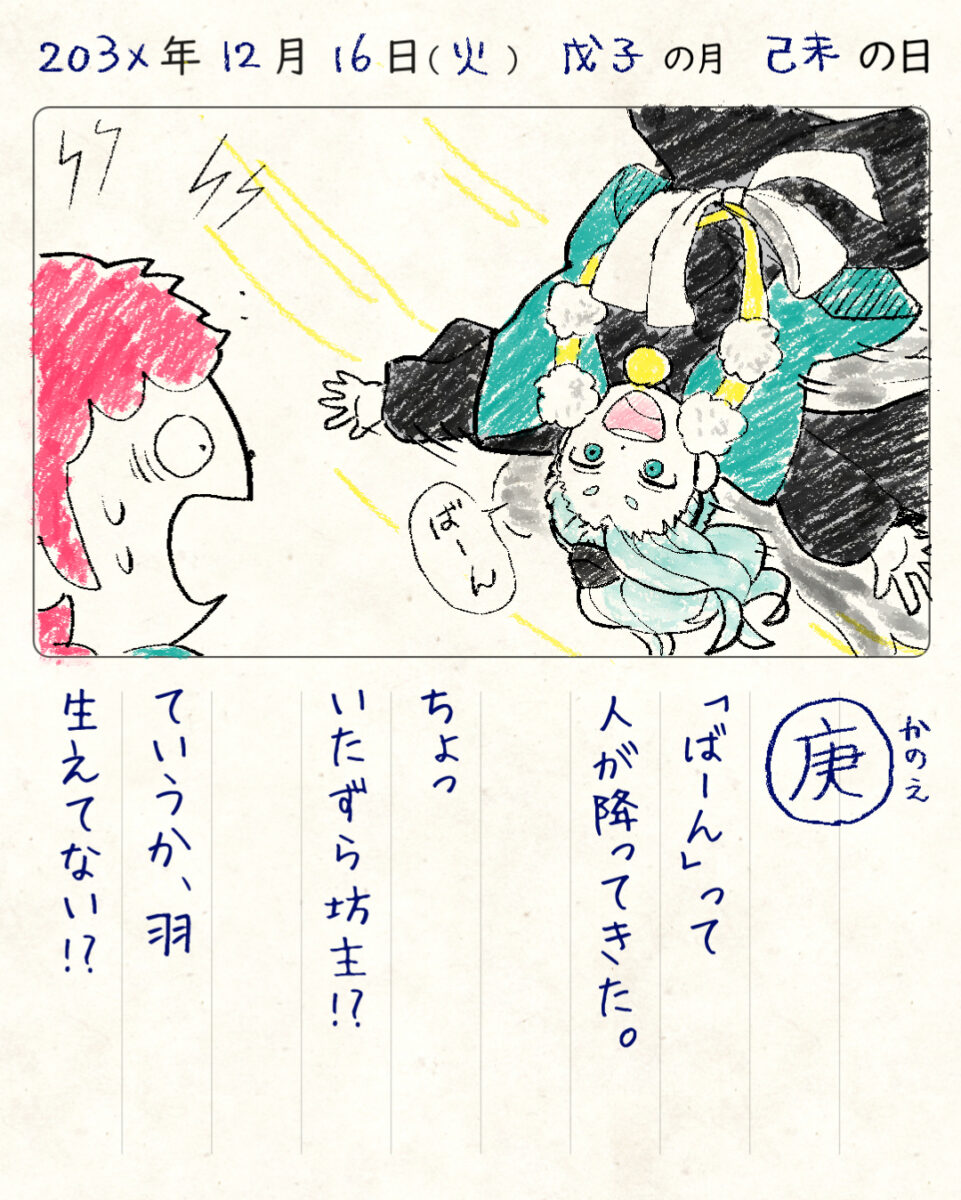 203x年 12月 16日(火) 戊子の月 己未の日
ばーん
かのえ
庚
「ばーん」って
人が降ってきた。
ちょっ
いたずら坊主!?
ていうか、羽
生えてない!?